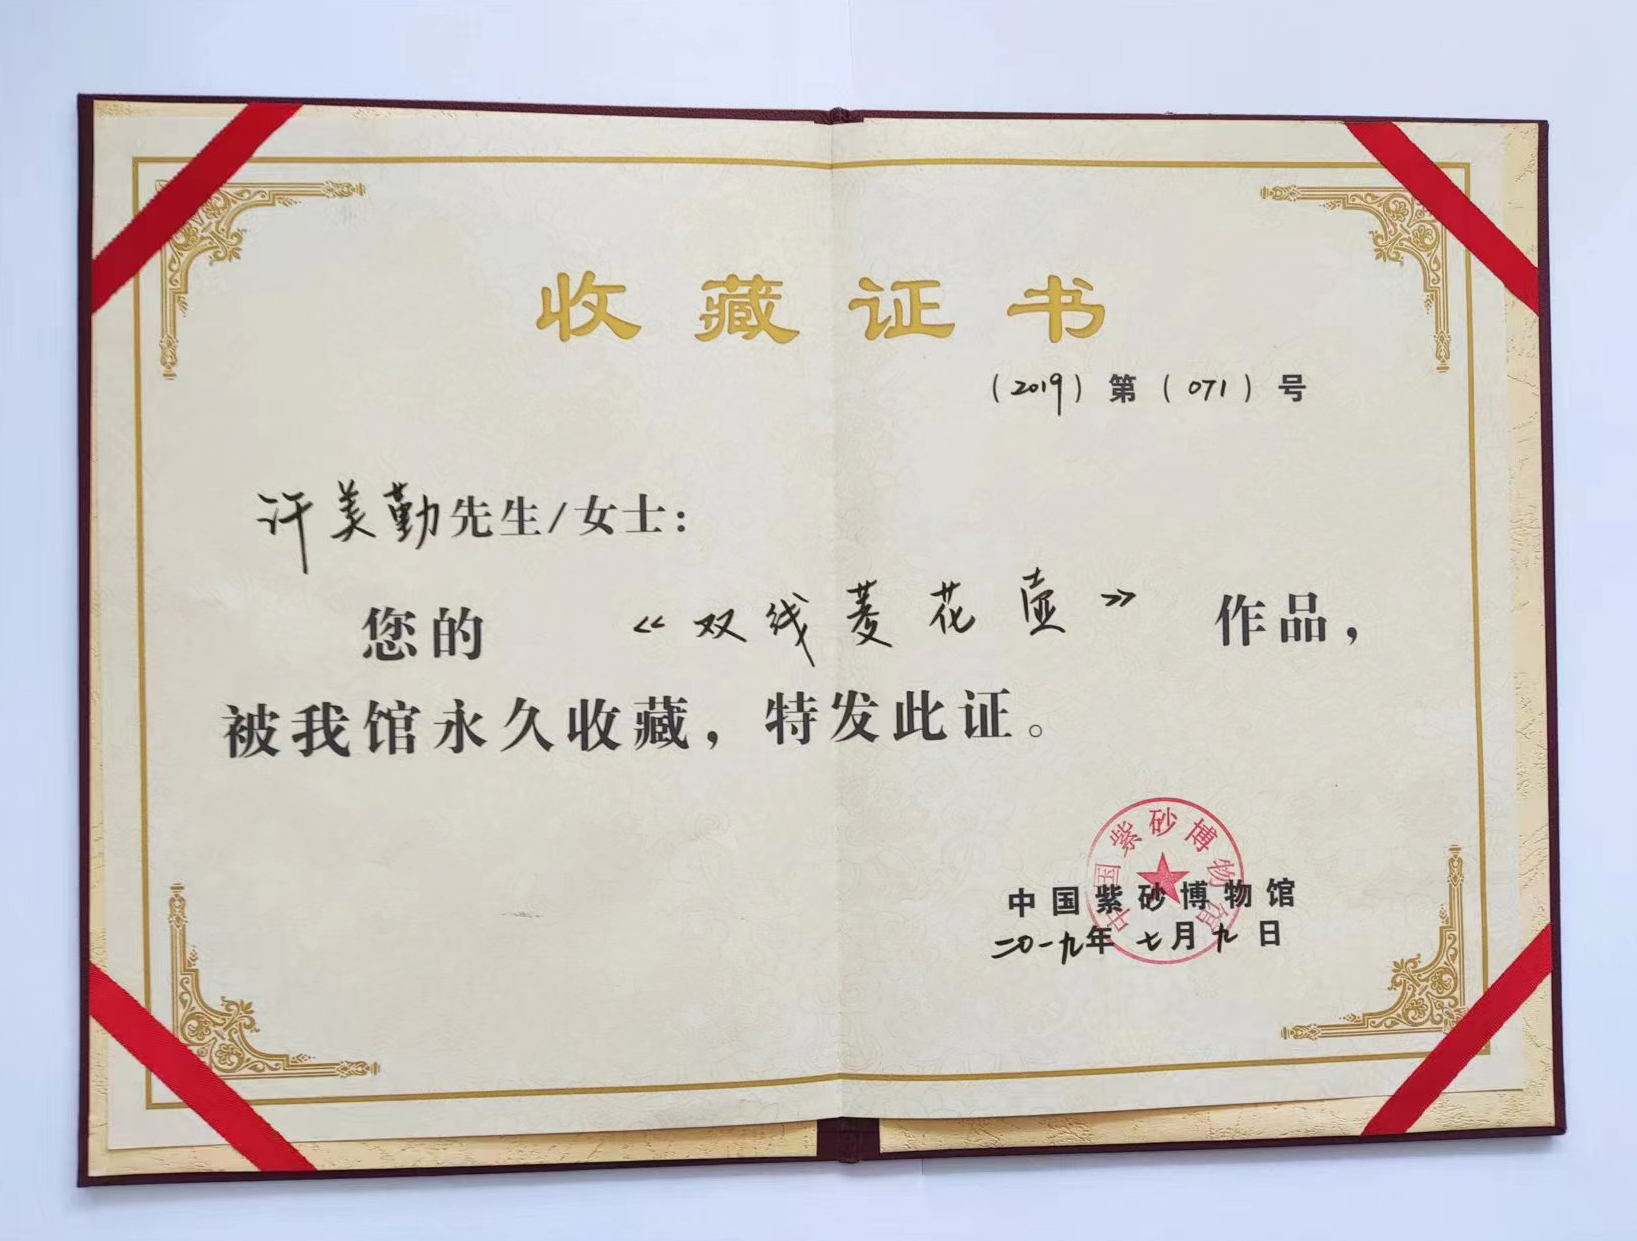 收藏证书
(2019)第(071)号
许美勤先生/女士:
您的《双线菱花壶》作品,
被我馆永久收藏,特发此证。
中国紫砂博物馆
中国紫砂博物馆
二〇一九年七月九日